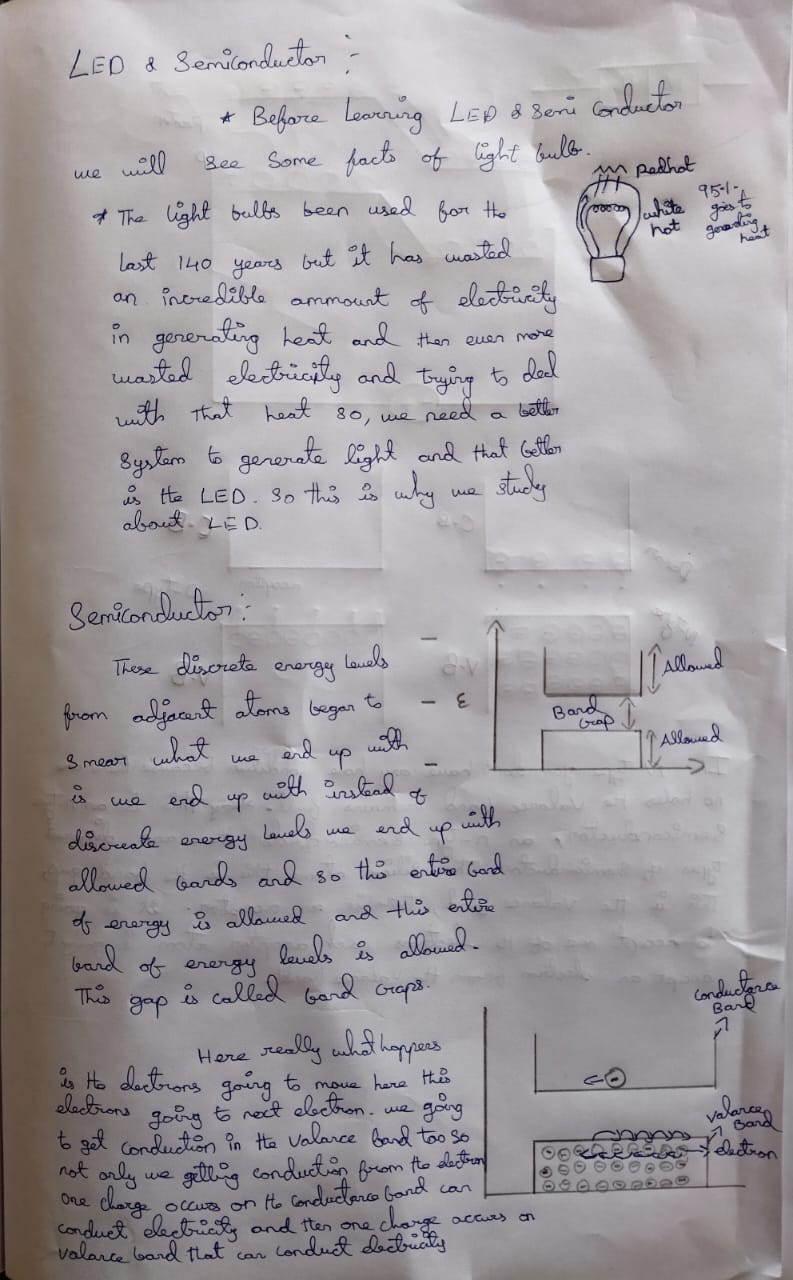 LED & Semiconductor :-
* Before Learning LED & Semi Conductor
we will see Some facts of light bulb.
Redhot
white hot
95-/- goes to generating heat
* The light bulbs been used for the
last 140 years but it has wasted
an incredible ammount of electricity
in generating heat and then even more
wasted electricity and trying to deal
with that heat so, we need a better
System to generate light and that better
is the LED. So this is why we study
about LED.
Semiconductor :-
These discrete energy levels
from adjacent atoms began to
smear what we end up with
is we end up with instead of
discreate energy levels we end up with
allowed bands and so this entire band
of energy is allowed and this entire
band of energy levels is allowed.
This gap is called band craps.
E
Allowed
Band Gap
Allowed
Here really what happens
is the electrons going to move here this
electrons going to next electron. we going
to get conduction in the valance band too so
not only we getting conduction from the electron
one charge occurs on the conductance band can
conduct electricity and then one charge accurs on
valance band that can conduct electricity
Conductance Band
valance Band
electron